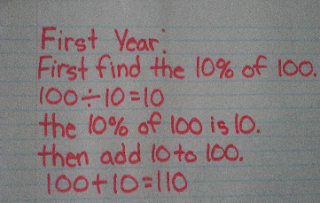 First Year:
First find the 10% of 100.
100÷10=10
the 10% of 100 is 10.
then add 10 to 100.
100+10=110